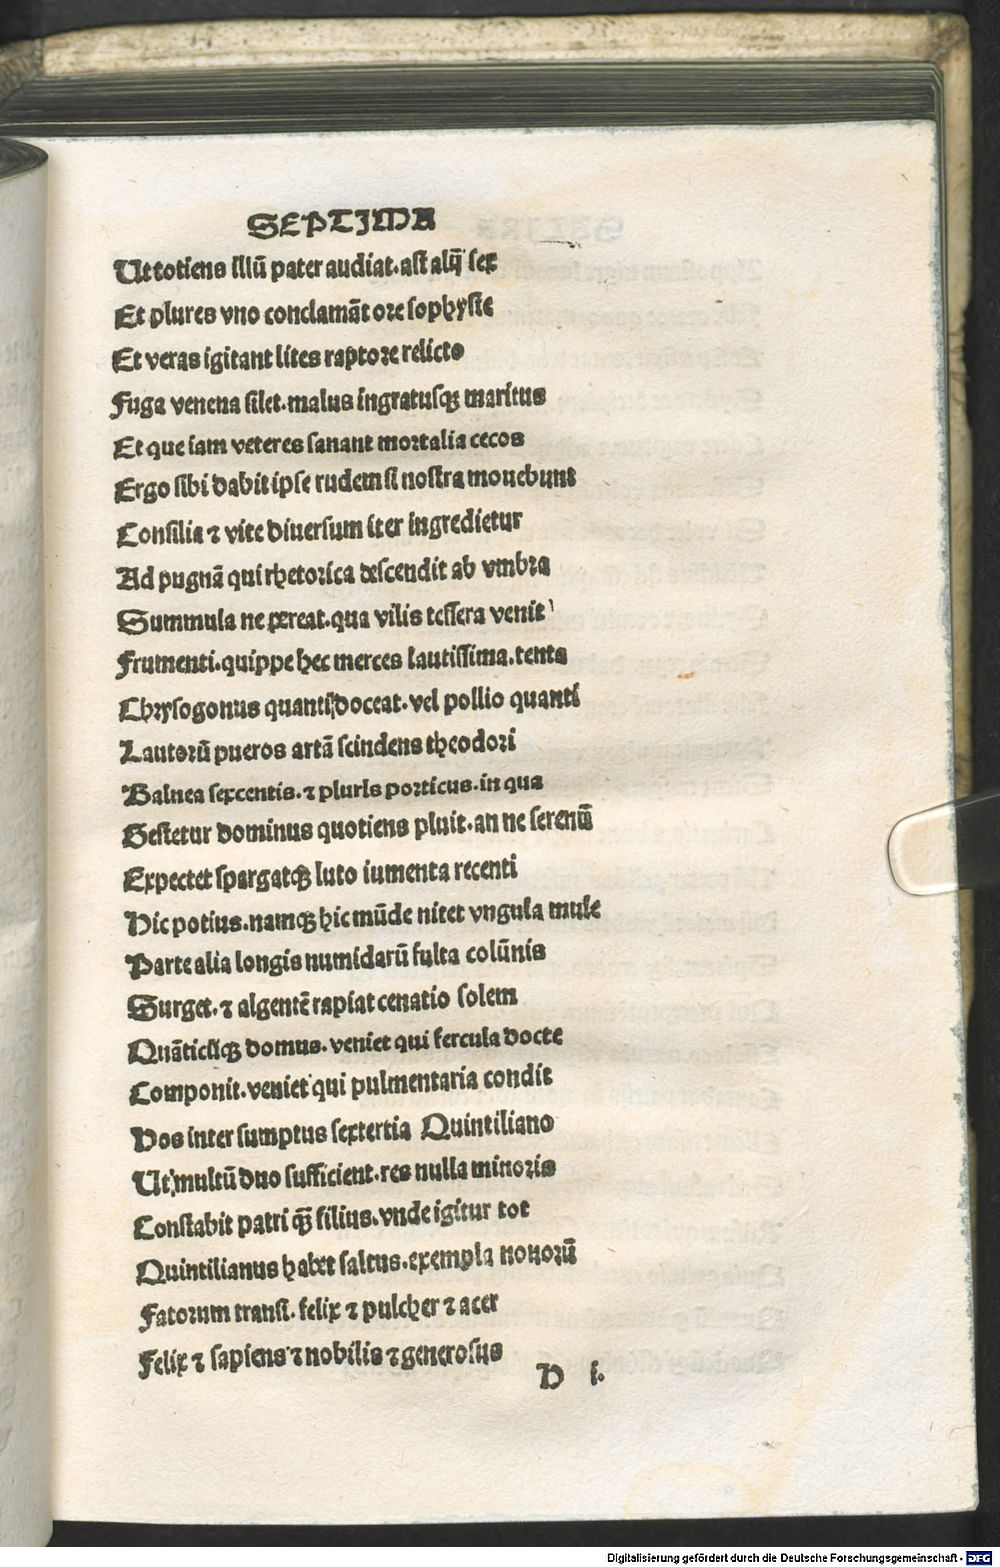 SEPTIMA
Ut totiens illū pater audiat. ast alij sex
Et plures vno conclamāt ore sophyste
Et veras igitant lites raptore relicto
Fuga venena silet. malus ingratusqꝫ maritus
Et que iam veteres sanant mortalia cecos
Ergo sibi dabit ipse rudem si nostra mouebunt
Consilia ⁊ vite diuersum iter ingredietur
Ad pugnā qui rhetorica descendit ab vmbra
Summula ne pereat. qua vilis tessera venit
Frumenti. quippe hec merces lautissima. tenta
Chrysogonus quanti doceat. vel pollio quanti
Lautorū pueros artā scindens theodori
Balnea sexcentis. ⁊ pluris porticus. in qua
Gestetur dominus quotiens pluit. an ne serenū
Expectet spargatqꝫ luto iumenta recenti
Hic potius. namqꝫ hic mūde nitet vngula mule
Parte alia longis numidarū fulta colūnis
Surget. ⁊ algentē rapiat cenatio solem
Quāticūqꝫ domus. veniet qui fercula docte
Componit. veniet qui pulmentaria condit
Hos inter sumptus sextertia Quintiliano
Ut multū duo sufficient. res nulla minoris
Constabit patri qꝫ̄ filius. vnde igitur tot
Quintilianus habet saltus. exempla nouorū
Fatorum transi. felix ⁊ pulcher ⁊ acer
Felix ⁊ sapiens ⁊ nobilis ⁊ generosus
H i.
Digitalisierung gefördert durch die Deutsche Forschungsgemeinschaft - DFG